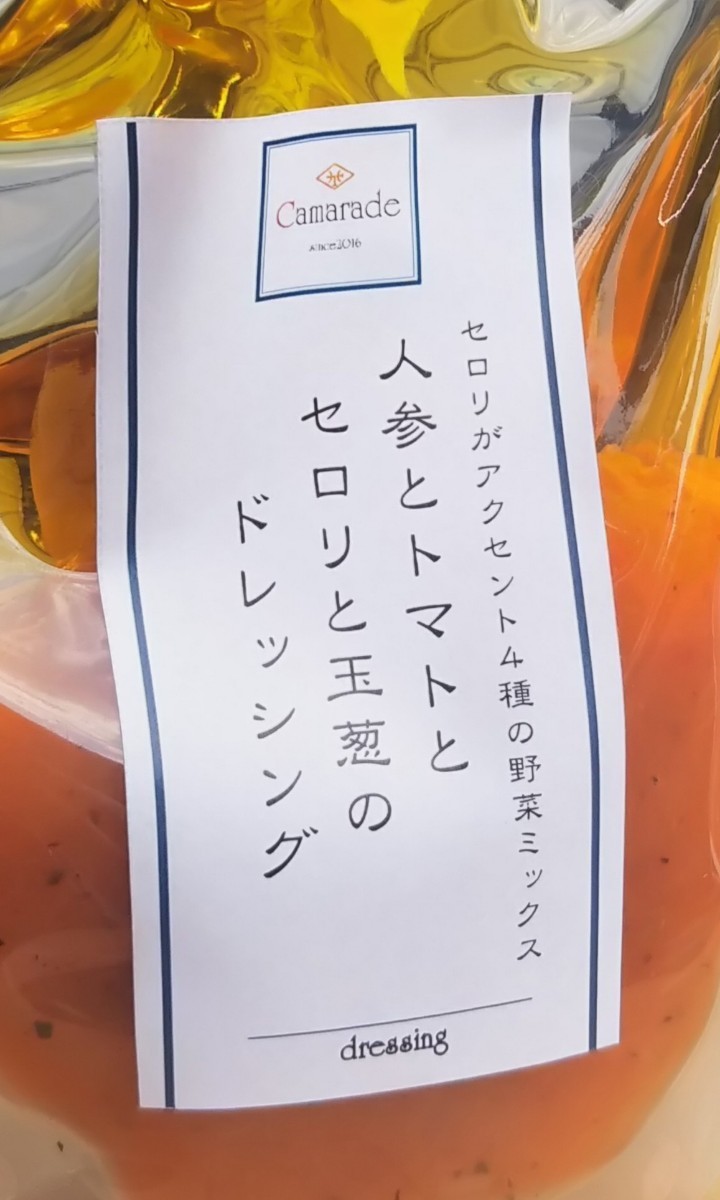 Camarade
since2016
セロリがアクセント4種の野菜ミックス
人参とトマトと
セロリと玉葱の
ドレッシング
dressing